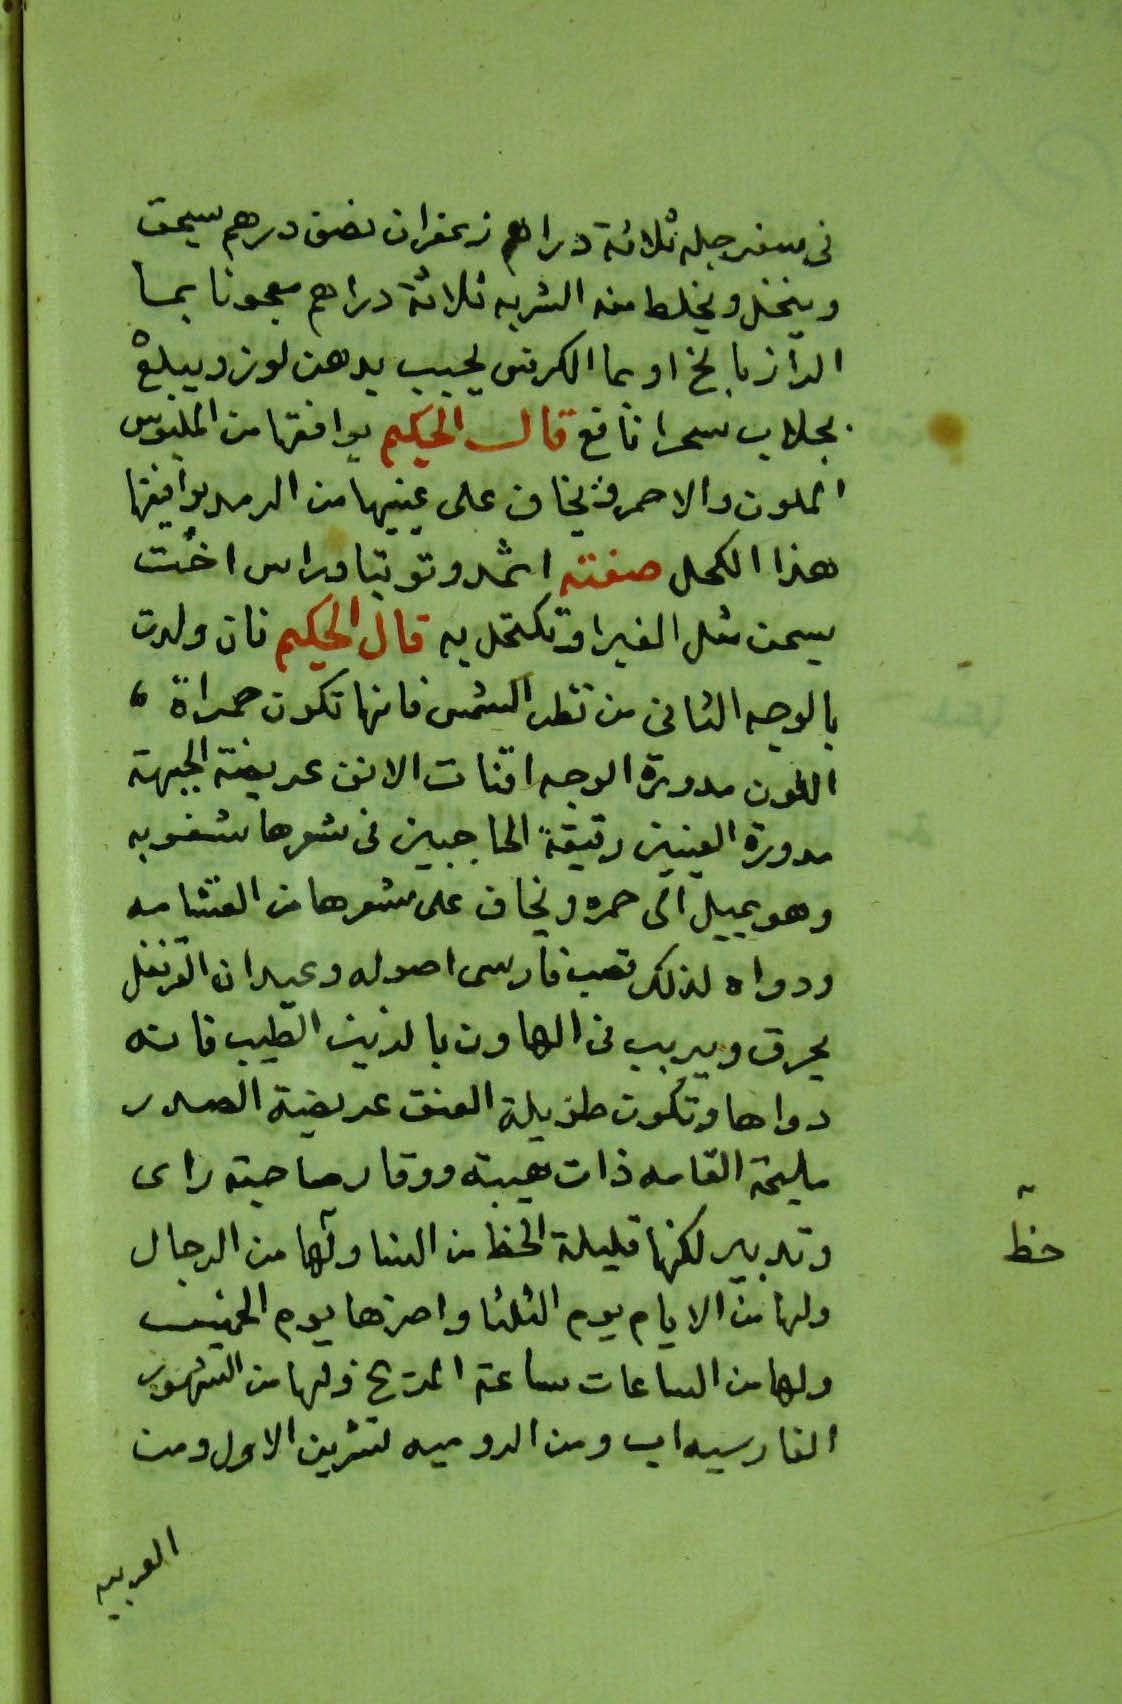 في سفرجله ثلاثة دراهم زعفران نصف درهم يسحق
وينخل ويخلط منه الشربه ثلاثة دراهم معجونا بما
الرازيانج او بما الكرفس يجبب بدهن لوز ويبلع
بجلاب سحرا نافع قال الحكيم يوافقها من الملبوس
الملون والاحمر ويخاف على عينيها من الرمد يوافقها
هذا الكحل صفته اثمد وتوتيا وراس اخت
يسحق مثل الغبرا وتكتحل به قال الحكيم فان ولدت
بالوجه الثاني من نظر الشمس فانها تكون حمراة
اللون مدورة الوجه اقنات الانف عريضة الجبهة
مدورة العينين رقيقة الحاجبين في شعرها شغوبه
وهو يميل الى حمره ويخاف على شعرها من القشامه
ودواه لذلك قصب فارسى اصوله وعيدان القرنفل
يحرق ويربب في الهاون بالذيت الطيب فانه
دواها وتكون طويلة العنق عريضة الصدر
مليحة القامه ذات هيبته ووقار صاحبته راى
وتدبير لكنها قليلة الحظ من النسا ولها من الرجال
حظ
ولها من الايام يوم الثلثا واحرزها يوم الخميس
ولها من الساعات ساعة المريخ ولها من الشهور
الفارسيه اب ومن الروميه لتشرين الاول ومن
العربيه